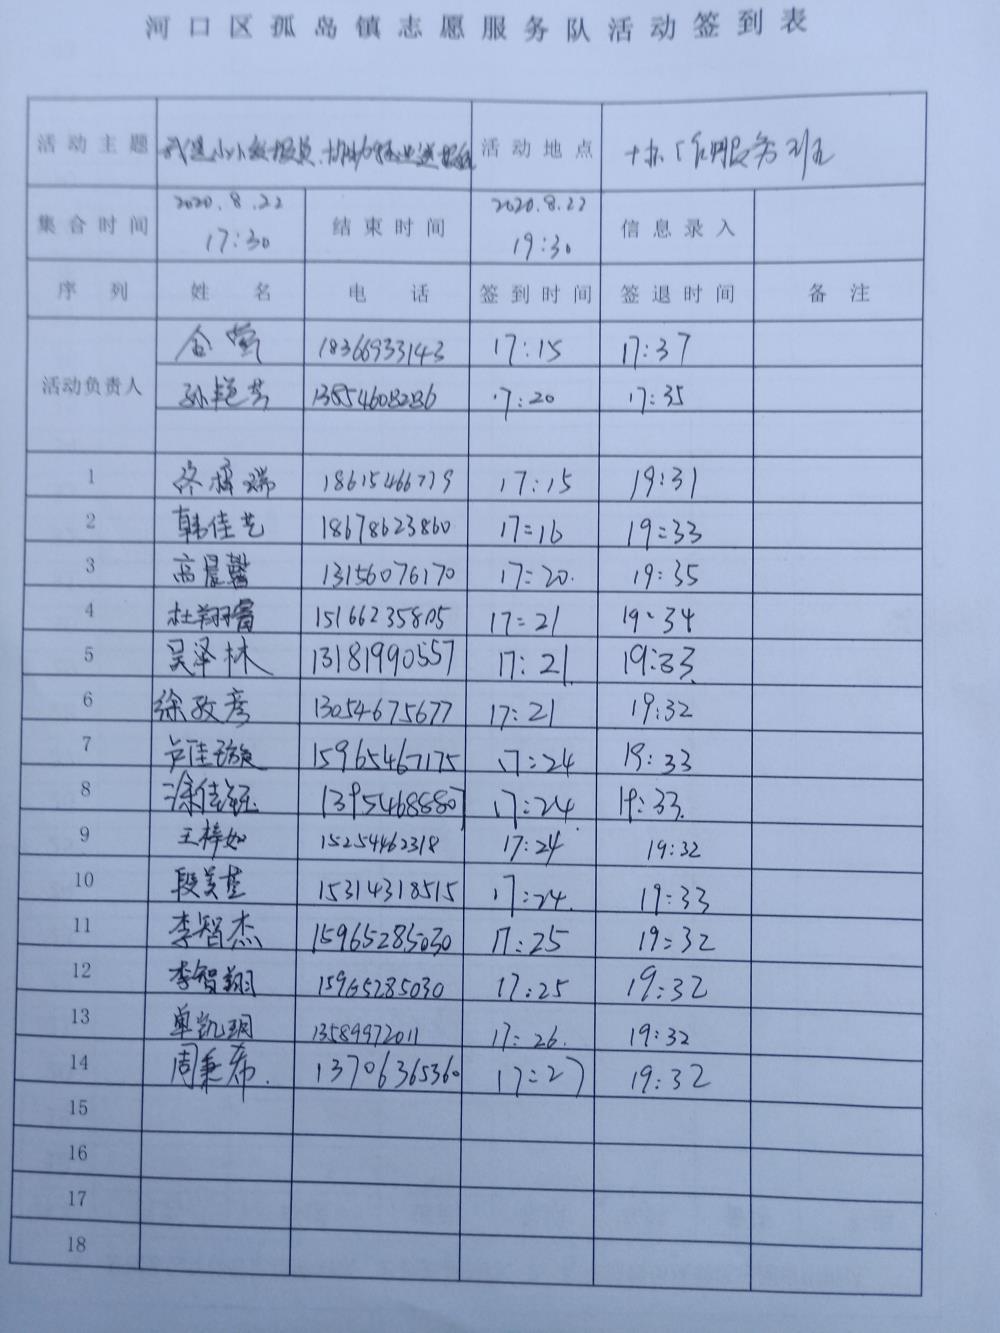 河口区孤岛镇志愿服务队活动签到表
活动主题 我是小小数报员 活动地点 服务
集合时间 2020.8.22 17:30 结束时间 2020.8.22 19:30 信息录入
序列 姓名 电话 签到时间 签退时间 备注
活动负责人
18366933143 17:15 17:37
孙艳芳 13854608286 17:20 17:35
1 18615466779 17:15 19:31
2 韩佳艺 18678623860 17:16 19:33
3 高晨馨 13156076170 17:20. 19:35
4 杜翔睿 15166235805 17:21 19:34
5 吴泽林 13181990557 17:21 19:33
6 徐敬彦 13054675677 17:21 19:32
7 卢佳璇 15965467175 17:24 19:33
8 涂佳钰 13954688807 17:24 19:33
9 王梓如 15254462318 17:24 19:32
10 段美莹 15314318515 17:24 19:33
11 李智杰 15965285030 17:25 19:32
12 李智翔 15965285030 17:25 19:32
13 单凯玥 13589972011 17:26. 19:32
14 周秉希. 13706365360 17:27 19:32
15
16
17
18